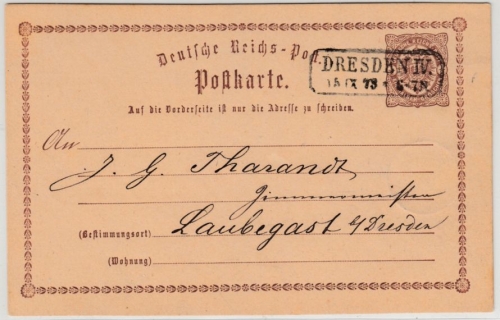 Deutsche Reichs-Post.
Postkarte.
DRESDEN IV.
15 IX 73
Auf die Vorderseite ist nur die Adresse zu schreiben.
An
J. G. Tharandt
Zimmermeister
Laubegast b/Dresden
(Bestimmungsort)
(Wohnung)